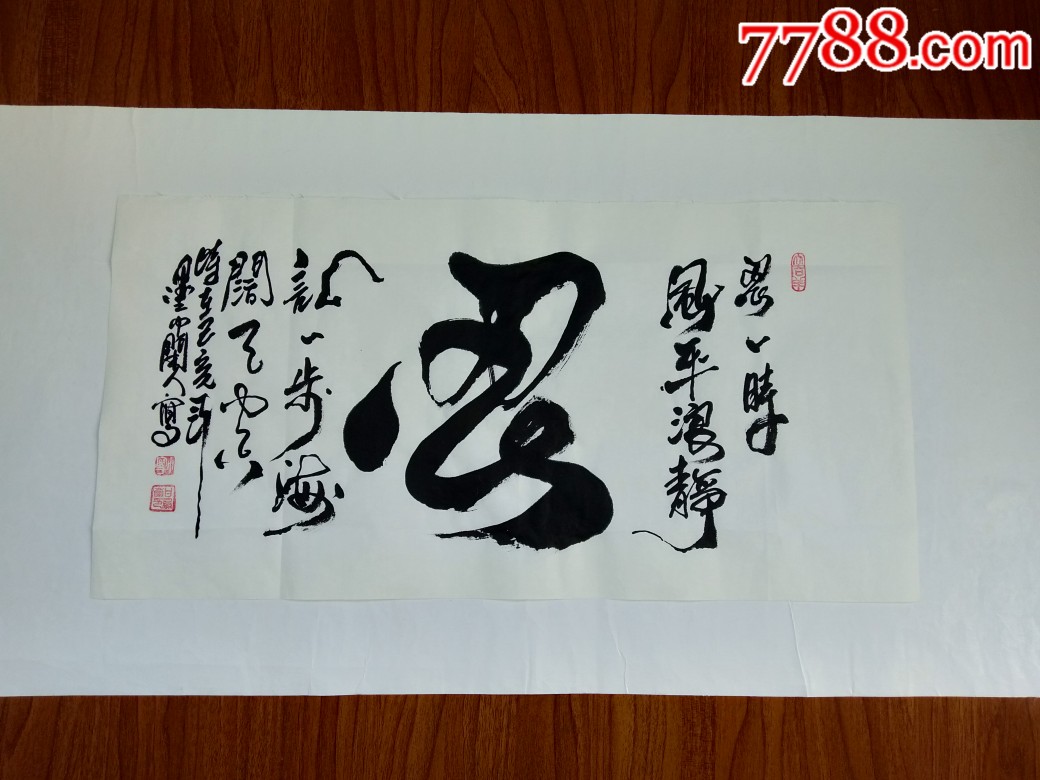 7788.com
忍一時
風平浪靜
忍
讓一步海
闊天空
時在己亥年
墨蘭人寫